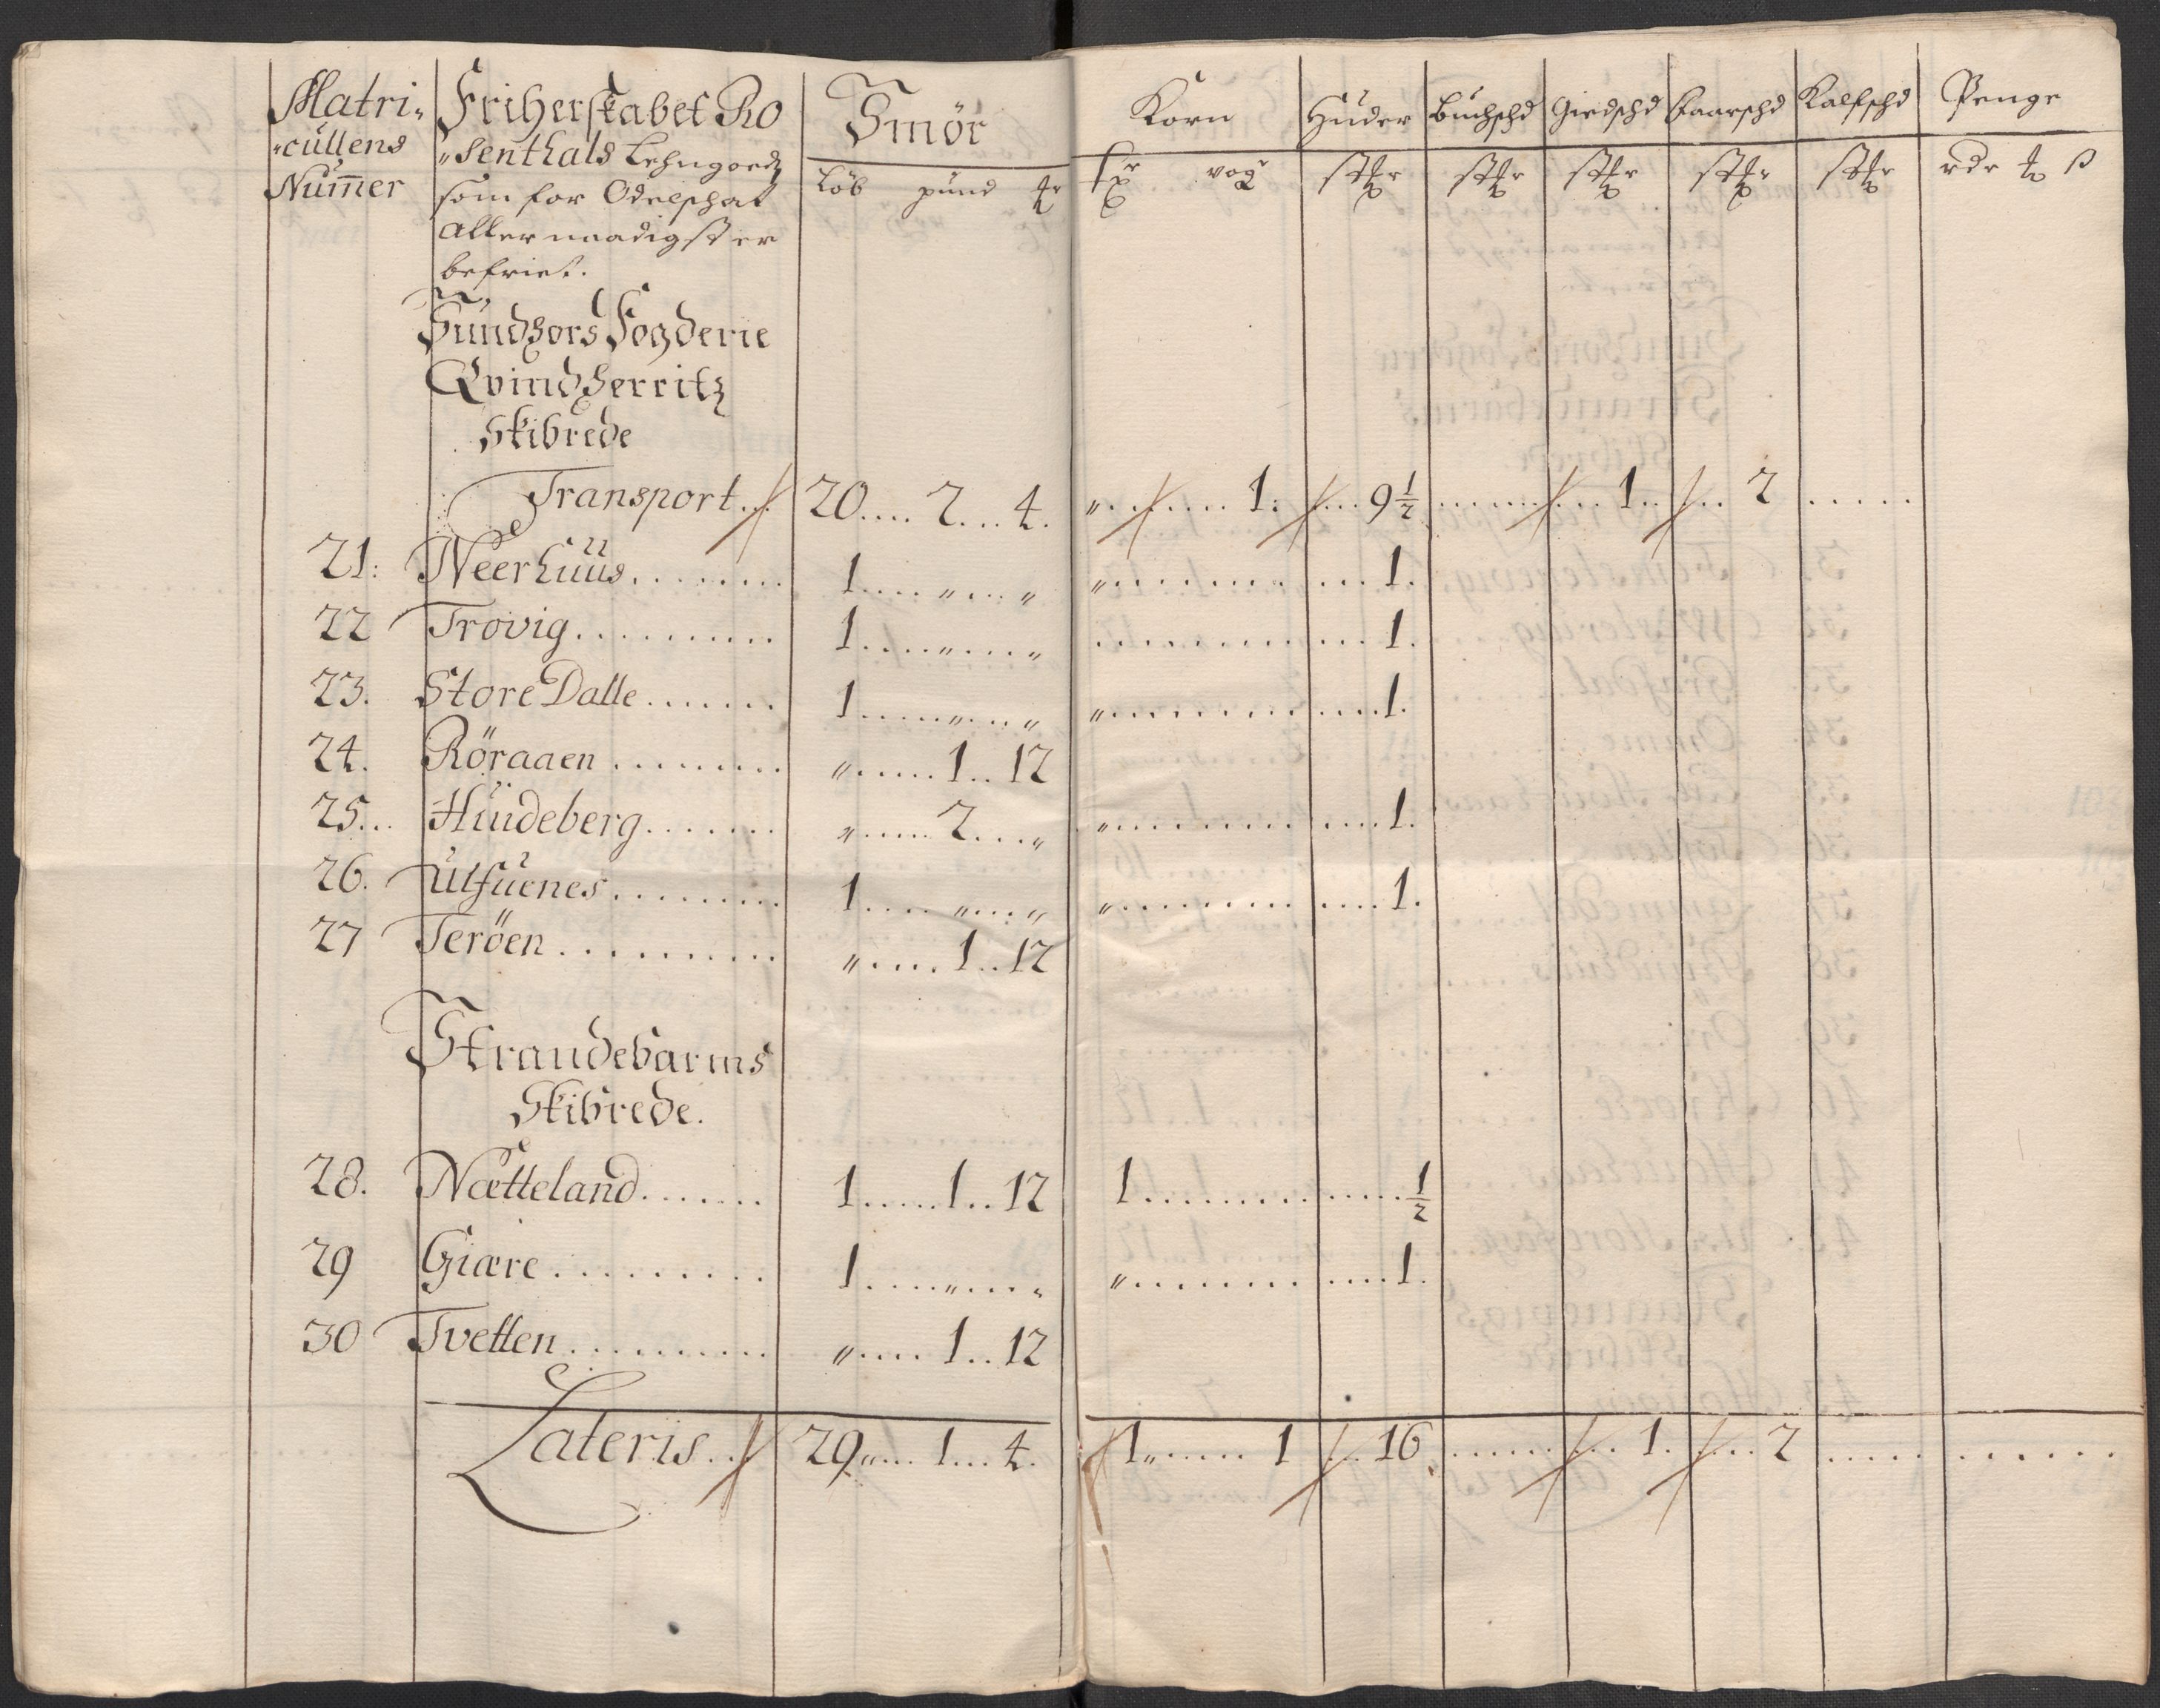 Matri-
-cullens
Numer
Friherskabet Ro
-senthals Lehngoedz
som for Odelschat
Allernaadigst er
befriet.
Smör
Löb pund
Korn
vog
Huder
Buchschd
Giedschd
Faarschd
Kalfschd
Penge
rdr ß
Sundhors Fogderie
Qvindherritz
Skibrede
Transport... 20.... 2... 4. „....... 1: .... 9½ ............ 1... .... 2 .....
21: Neerhuus........ 1.....„...„ „............ 1.
22 Trovig.......... 1.....„...„ ............ 1.
23. Store Dalle....... 1.....„...„ „............ 1.
24. Röraaen......... „..... 1.. 12
25... Hundeberg....... „..... 2...„ „............ 1.
26. Ulfuenes......... 1.....„...„ „............ 1.
27 Teröen.......... „..... 1.. 12
Strandebarms
Skibrede.
28. Nætteland....... 1..... 1.. 12 1............ ½
29 Giære.......... 1.....„...„ „............ 1.
30 Tvetten.......... „..... 1.. 12
Lateris... 29„... 1... 4. 1„...... 1 ... 16 ......... 1. .... 2 ............